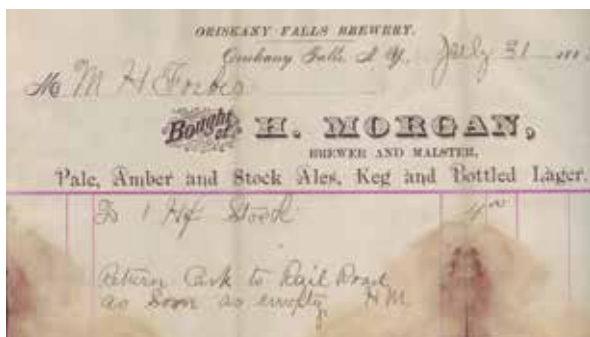 ORISKANY FALLS BREWERY.
Oriskany Falls, N. Y., July 31 188
M M H Forbes
Bought of H. MORGAN,
BREWER AND MALSTER,
Pale, Amber and Stock Ales, Keg and Bottled Lager.
To 1 Hf Stock 4 00
Return Cask to Rail Road
as soon as empty, HM